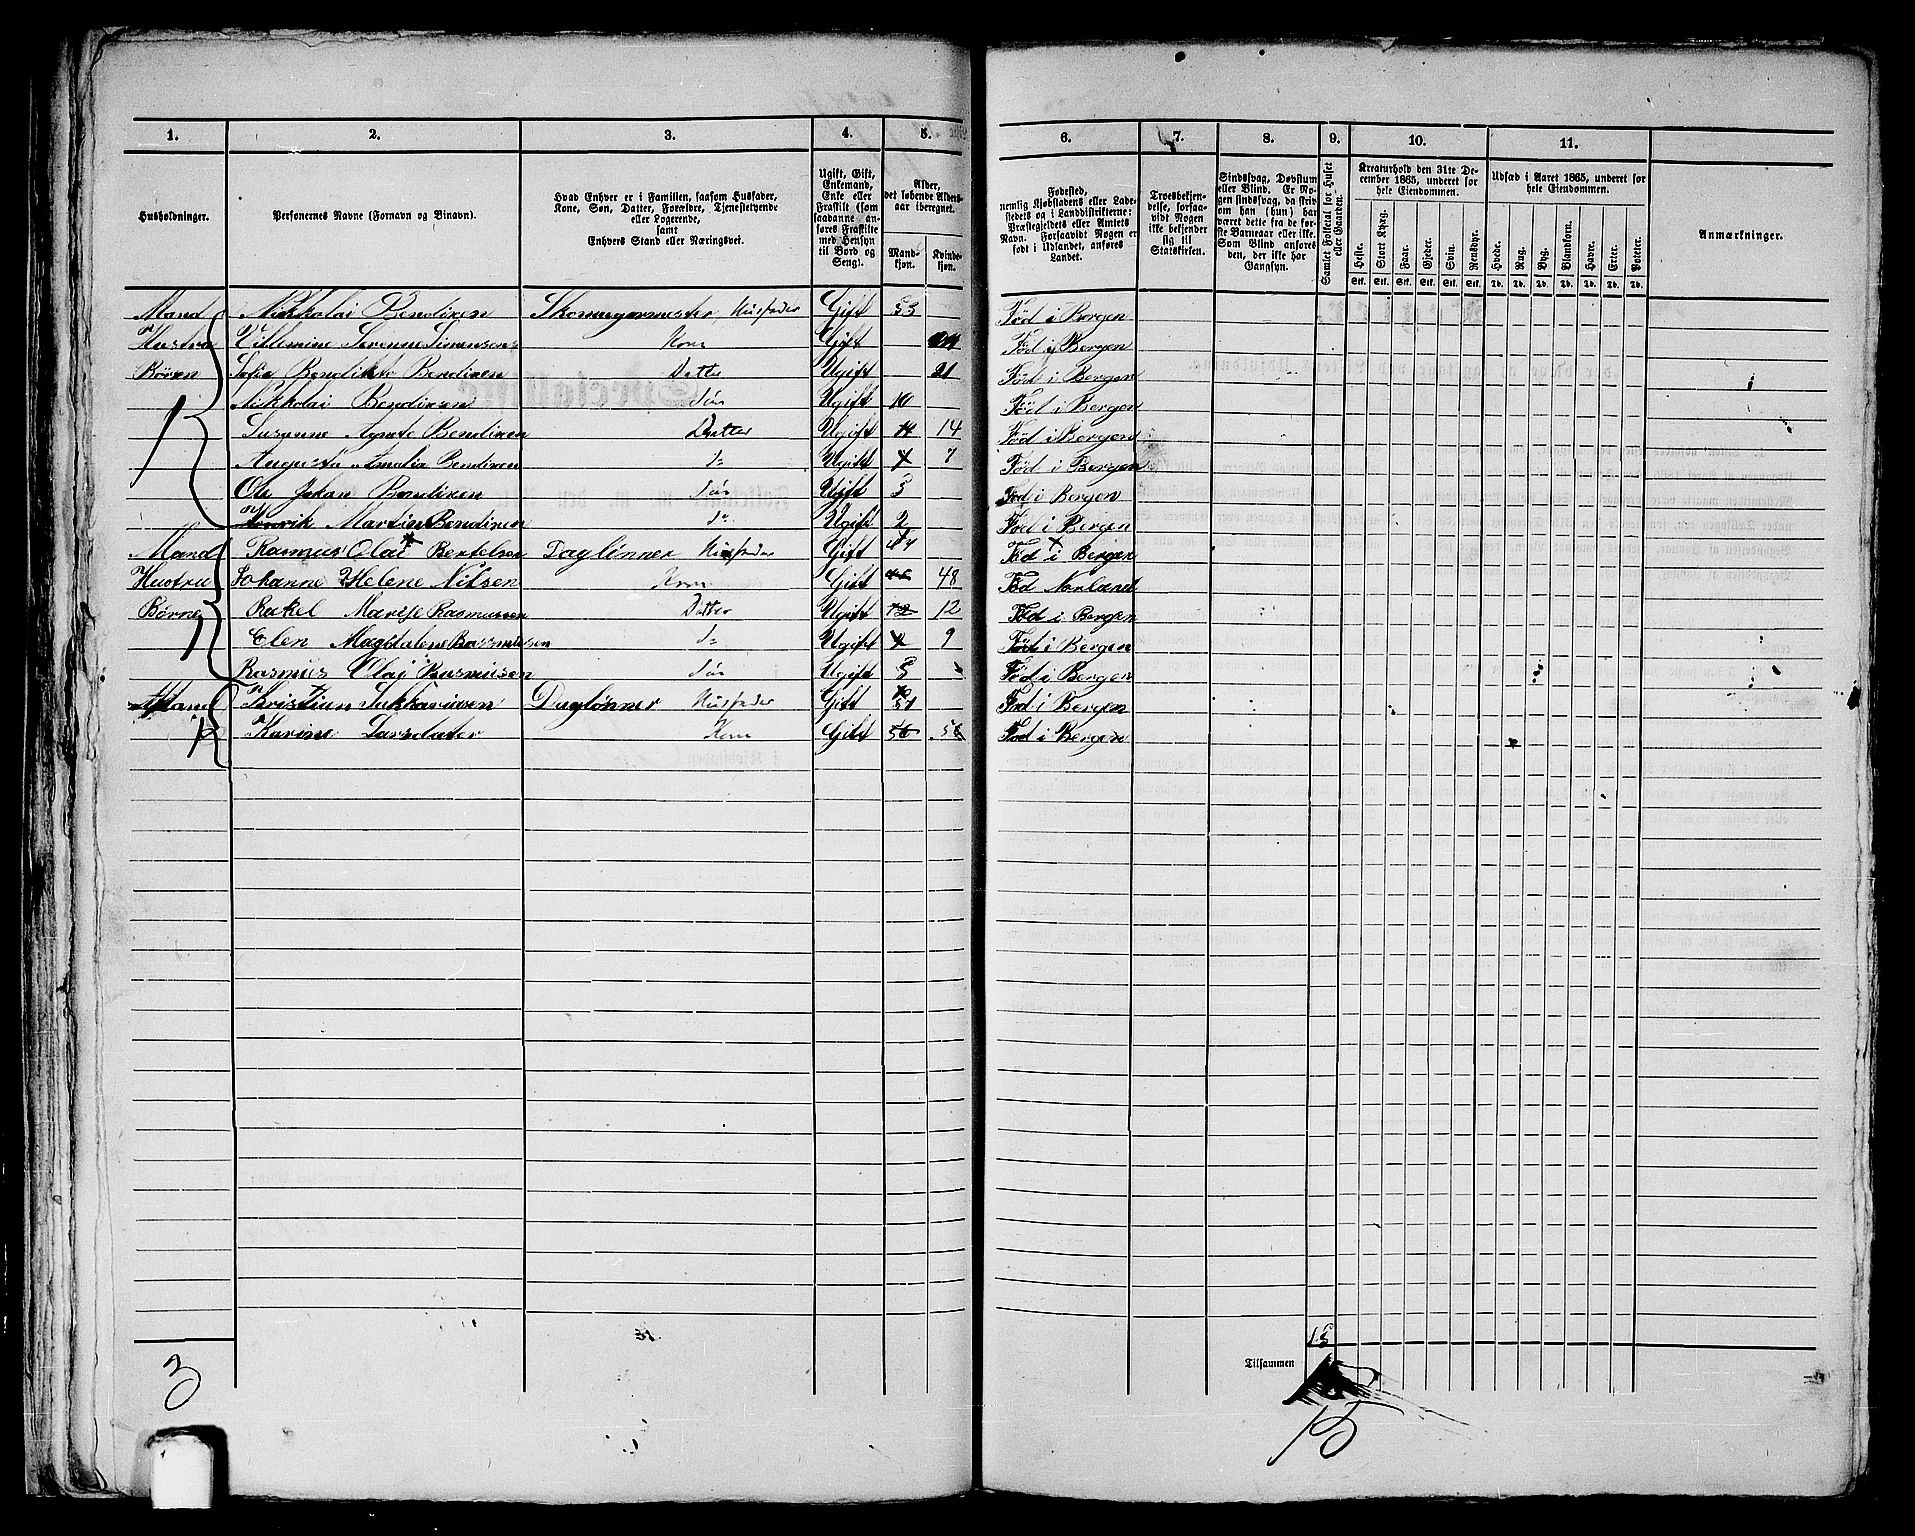 1. 2. 3. 4. 5. 6. 7. 8. 9. 10. 11.
Husholdninger.
Personernes Navne (Fornavn og Binavn).
Hvad Enhver er i Familien, saasom Husfader,
Kone, Søn, Datter, Forældre, Tjenestetyende
eller Logerende,
samt
Enhvers Stand eller Næringsvei.
Ugift, Gift,
Enkemand,
Enke eller
Fraskilt (som
saadanne anføres Fraskilte
med Hensyn
til Bord og
Seng).
Alder,
det løbende Alders-
aar iberegnet.
Mand-
kjøn.
Kvinde-
kjøn.
Fødested,
nemlig Kjøbstadens eller Lade-
stedets og i Landdistrikterne:
Præstegjeldets eller Amtets
Navn. Forsaavidt Nogen er
født i Udlandet, anføres
Landet.
Troesbekjen-
delse, forsaa-
vidt Nogen
ikke bekjender
sig til
Statskirken.
Sindssvag, Døvstum
eller Blind. Er No-
gen sindssvag, da skriv
om han (hun) har
været dette fra de før-
ste Barneaar eller ikke.
Som Blind anføres
den, der ikke har
Gangsyn.
Samlet Folketal for Huset
eller Gaarden.
Kreaturhold den 31te De-
cember 1865, underet for
hele Eiendommen.
Heste. Stort Kvæg. Faar. Gjeder. Svin. Rensdyr.
Stk. Stk. Stk. Stk. Stk. Stk.
Udsæd i Aaret 1865, underet for
hele Eiendommen.
Hvede. Rug. Byg. Blandkorn. Havre. Erter. Poteter.
Td. Td. Td. Td. Td. Td. Td.
Anmærkninger.
Mand Nikkolai Bendixen Skomagermester, Husfader Gift 53 Fød i Bergen
Hustru Villemine Serenne Simensen Kone Gift 44 Fød i Bergen
Børen Sofie Bendikte Bendixen Datter Ugift 21 Fød i Bergen
Nikkolai Bendixen Søn Ugift 10 Fød i Bergen
Susanne Agnete Bendixen Datter Ugift 14 Fød i Bergen
Augusta Amalia Bendixen do Ugift 7 Fød i Bergen
Ole Johan Bendixen Søn Ugift 5 Fød i Bergen
Henrik Martin Bendixen do Ugift 2 Fød i Bergen
Mand Rasmus Olai Bertelsen Daglönner Husfader Gift 47 Fød i Bergen
Hustru Johanne Helene Nilsen Kone Gift 48 Fød Norland
Børne Rakel Marije Rasmussen Datter Ugift 12 Fød i Bergen
Elen Magdalene Rasmussen do Ugift 9 Fød i Bergen
Rasmus Olai Rasmussen Søn Ugift 5 Fød i Bergen
Mand Kristian Sakkariasen Daglønner Husfader Gift 51 Fød i Bergen
Karine Larsdater Kone Gift 56 56 Fød i Bergen
31.
15
Tilsammen
3
15